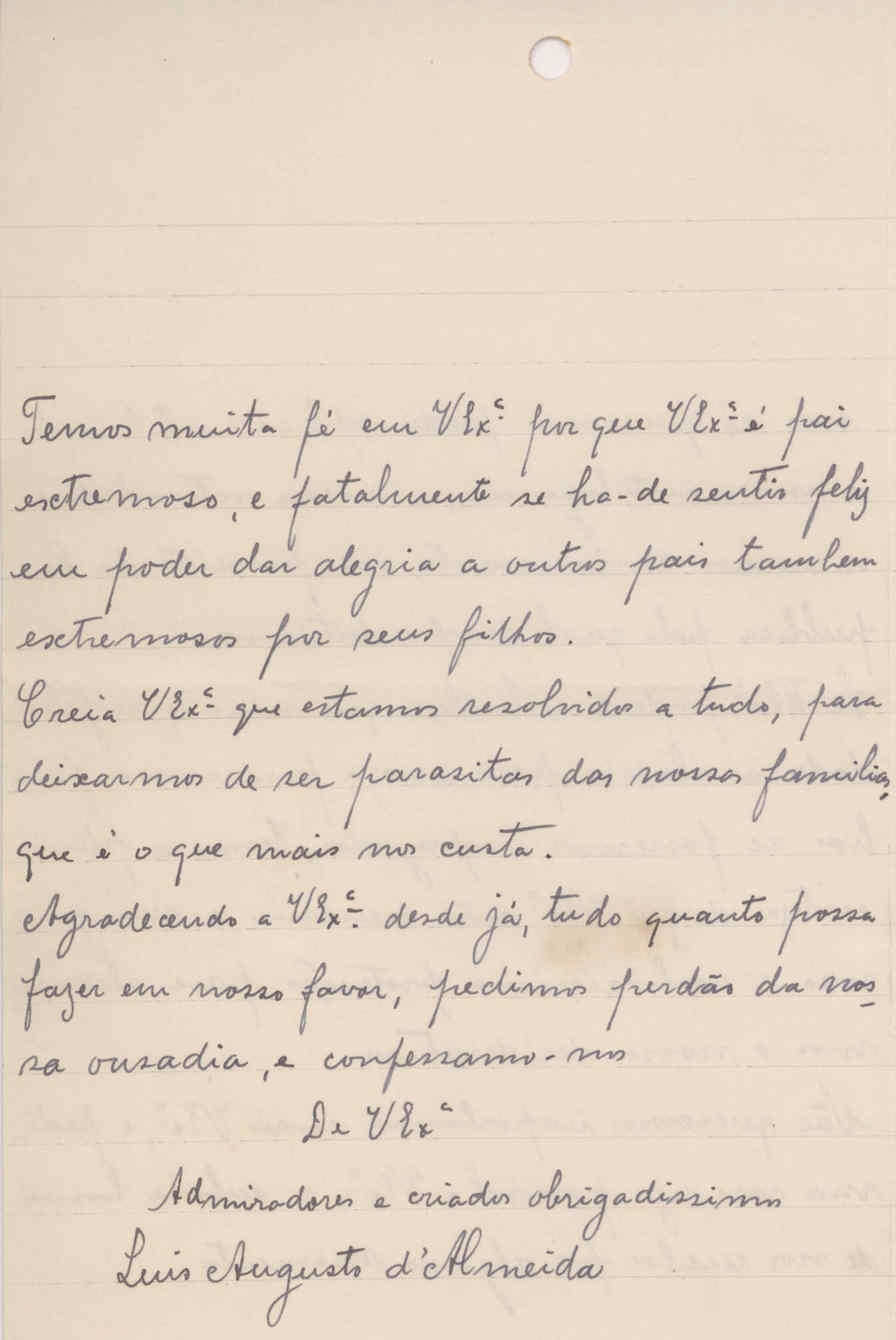 Temos muita fé em VExᶜ. por que VExᶜ. é pai
extremoso, e fatalmente se ha-de sentir feliz
em poder dar alegria a outros pais tambem
extremosos por seus filhos.
Creia VExᶜ. que estamos resolvidos a tudo, para
deixarmos de ser parasitas das nossas familias,
que é o que mais nos custa.
Agradecendo a VExᶜ. desde já, tudo quanto possa
fazer em nosso favor, pedimos perdão da nos-
sa ousadia, e confessamo-nos
De VExᶜ
Admiradores e criados obrigadissimos
Luis Augusto d'Almeida